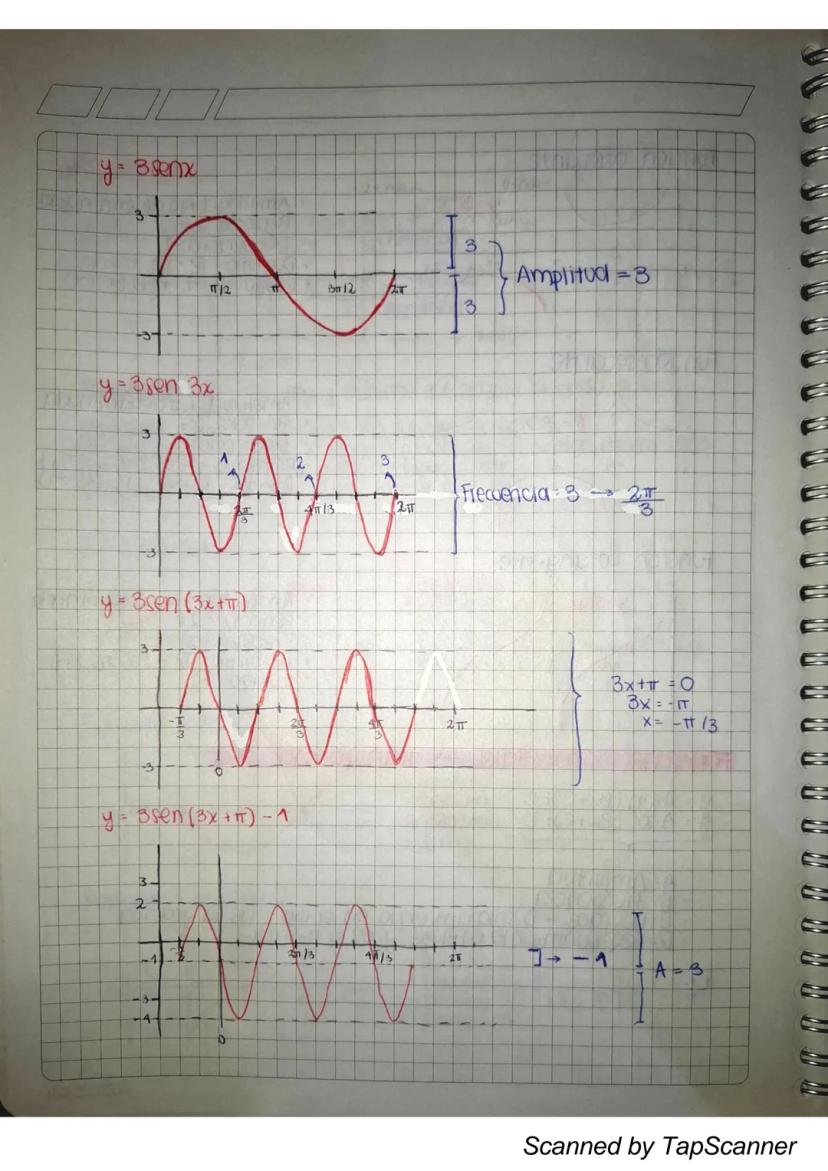 y = 3senx
3
3
π/2 π 3π/2 2π
3
Amplitud = 3
-3
y = 3sen 3x
3
1 2 3
2π/3 4π/3 2π
Frecuencia = 3 → 2π/3
-3
y = 3sen (3x+π)
3
-π/3 2π/3 4π/3 2π
3x+π = 0
3x = -π
x = -π/3
-3
0
y = 3sen (3x+π) - 1
3
2
-1 2π/3 4π/3 2π
] → -1
A = 3
-3
-4
0
Scanned by TapScanner